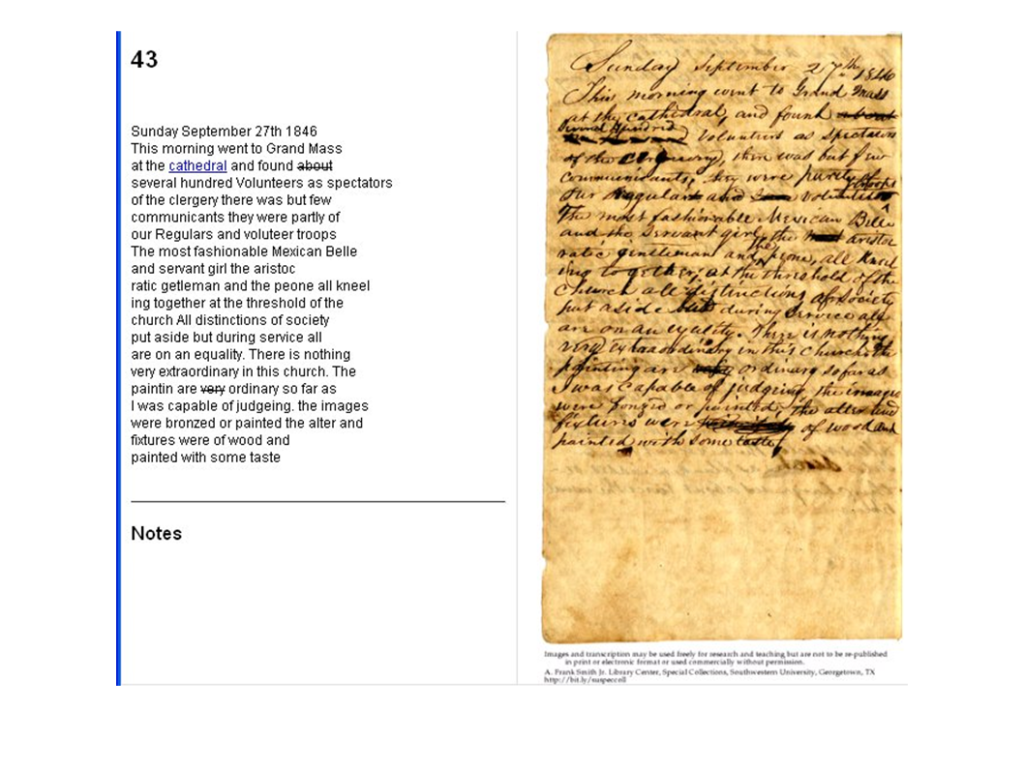 43
Sunday September 27th 1846
This morning went to Grand Mass
at the cathedral and found about
several hundred Volunteers as spectators
of the clergery there was but few
communicants they were partly of
our Regulars and voluteer troops
The most fashionable Mexican Belle
and servant girl the aristoc
ratic getleman and the peone all kneel
ing together at the threshold of the
church All distinctions of society
put aside but during service all
are on an equality. There is nothing
very extraordinary in this church. The
paintin are very ordinary so far as
I was capable of judgeing. the images
were bronzed or painted the alter and
fixtures were of wood and
painted with some taste
Notes
Sunday September 27th 1846
This morning went to Grand Mass
at the cathedral, and found about
several hundred Volunteers as spectators
of the, there was but few
communicants, they were partly of
our Regulars and volunteer troops
The most fashionable Mexican Belle
and the servant girl, the aristoc
ratic gentleman and the peone, all kneel
ing together, at the threshold of the
Church all distinctions of society
put aside but during service all
are on an equality. There is nothing
very extraordinary in this church. the
painting are very ordinary so far as
I was capable of judgeing, the images
were bronzed or painted, the alter and
fixtures were of wood and
painted with some taste
Images and transcription may be used freely for research and teaching but are not to be re-published
in print or electronic format or used commercially without permission.
A. Frank Smith Jr. Library Center, Special Collections, Southwestern University, Georgetown, TX
http://bit.ly/suspeccoll